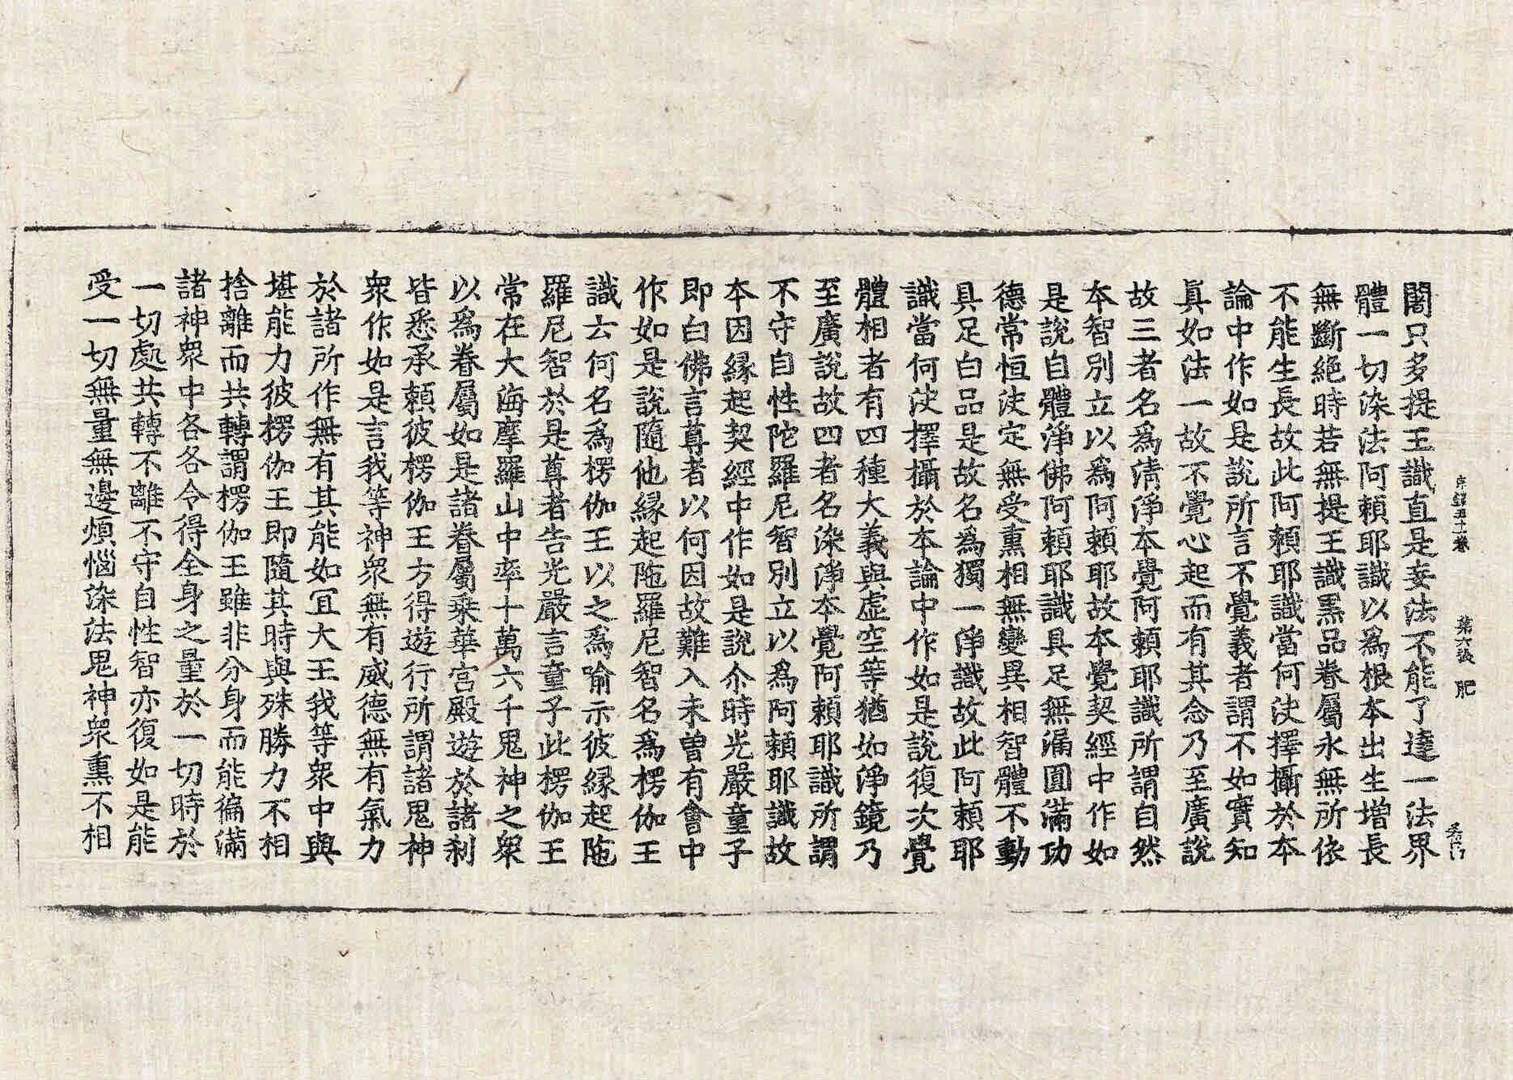 宗鏡五十卷　第六張　肥
闍只多提王識直是妄法不能了達一法界
體一切染法阿賴耶識以為根本出生增長
無斷絕時若無提王識黑品眷屬永無所依
不能生長故此阿賴耶識當何決擇攝於本
論中作如是說所言不覺義者謂不如實知
眞如法一故不覺心起而有其念乃至廣說
故三者名為清淨本覺阿賴耶識所謂自然
本智別立以為阿賴耶故本覺契經中作如
是說自體淨佛阿賴耶識具足無漏圓滿功
德常恒決定無受熏相無變異相智體不動
具足白品是故名為獨一淨識故此阿賴耶
識當何決擇攝於本論中作如是說復次覺
體相者有四種大義與虛空等猶如淨鏡乃
至廣說故四者名染淨本覺阿賴耶識所謂
不守自性陀羅尼智別立以為阿賴耶識故
本因緣起契經中作如是說尒時光嚴童子
即白佛言尊者以何因故難入未曾有會中
作如是說隨他緣起陁羅尼智名為楞伽王
識云何名為楞伽王以之為喻示彼緣起陁
羅尼智於是尊者告光嚴言童子此楞伽王
常在大海摩羅山中率十萬六千鬼神之衆
以為眷屬如是諸眷屬乘華宮殿遊於諸刹
皆悉承賴彼楞伽王方得遊行所謂諸鬼神
衆作如是言我等神衆無有威德無有氣力
於諸所作無有其能如冝大王我等衆中與
堪能力彼楞伽王即隨其時與殊勝力不相
捨離而共轉謂楞伽王雖非分身而能徧滿
諸神衆中各各令得全身之量於一切時於
一切處共轉不離不守自性智亦復如是能
受一切無量無邊煩惱染法鬼神衆熏不相